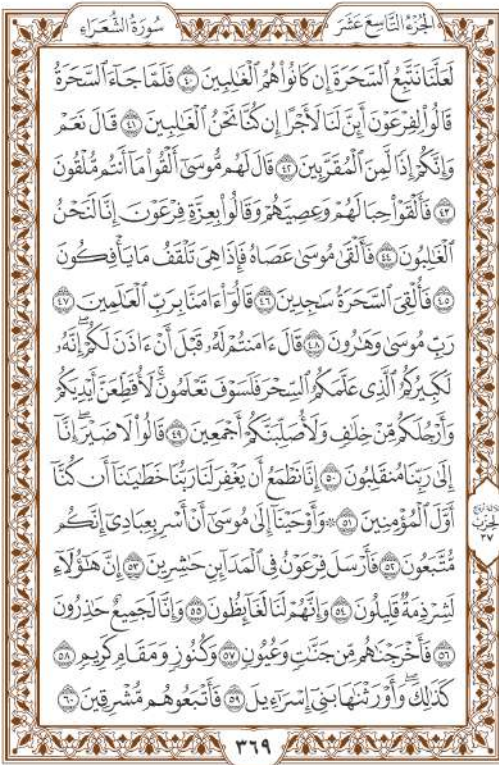 الجُزْءُ التَّاسِعَ عَشَرَ
سُورَةُ الشُّعَرَاءِ
لَعَلَّنَا نَتَّبِعُ ٱلسَّحَرَةَ إِن كَانُواْ هُمُ ٱلۡغَٰلِبِينَ ٤٠ فَلَمَّا جَآءَ ٱلسَّحَرَةُ
قَالُواْ لِفِرۡعَوۡنَ أَئِنَّ لَنَا لَأَجۡرًا إِن كُنَّا نَحۡنُ ٱلۡغَٰلِبِينَ ٤١ قَالَ نَعَمۡ
وَإِنَّكُمۡ إِذٗا لَّمِنَ ٱلۡمُقَرَّبِينَ ٤٢ قَالَ لَهُم مُّوسَىٰٓ أَلۡقُواْ مَآ أَنتُم مُّلۡقُونَ
٤٣ فَأَلۡقَوۡاْ حِبَالَهُمۡ وَعِصِيَّهُمۡ وَقَالُواْ بِعِزَّةِ فِرۡعَوۡنَ إِنَّا لَنَحۡنُ
ٱلۡغَٰلِبُونَ ٤٤ فَأَلۡقَىٰ مُوسَىٰ عَصَاهُ فَإِذَا هِيَ تَلۡقَفُ مَا يَأۡفِكُونَ
٤٥ فَأُلۡقِيَ ٱلسَّحَرَةُ سَٰجِدِينَ ٤٦ قَالُوٓاْ ءَامَنَّا بِرَبِّ ٱلۡعَٰلَمِينَ ٤٧
رَبِّ مُوسَىٰ وَهَٰرُونَ ٤٨ قَالَ ءَامَنتُمۡ لَهُۥ قَبۡلَ أَنۡ ءَاذَنَ لَكُمۡۖ إِنَّهُۥ
لَكَبِيرُكُمُ ٱلَّذِي عَلَّمَكُمُ ٱلسِّحۡرَ فَلَسَوۡفَ تَعۡلَمُونَۚ لَأُقَطِّعَنَّ أَيۡدِيَكُمۡ
وَأَرۡجُلَكُم مِّنۡ خِلَٰفٖ وَلَأُصَلِّبَنَّكُمۡ أَجۡمَعِينَ ٤٩ قَالُواْ لَا ضَيۡرَۖ إِنَّآ
إِلَىٰ رَبِّنَا مُنقَلِبُونَ ٥٠ إِنَّا نَطۡمَعُ أَن يَغۡفِرَ لَنَا رَبُّنَا خَطَٰيَٰنَآ أَن كُنَّآ
أَوَّلَ ٱلۡمُؤۡمِنِينَ ٥١ ۞ وَأَوۡحَيۡنَآ إِلَىٰ مُوسَىٰٓ أَنۡ أَسۡرِ بِعِبَادِيٓ إِنَّكُم
مُّتَّبَعُونَ ٥٢ فَأَرۡسَلَ فِرۡعَوۡنُ فِي ٱلۡمَدَآئِنِ حَٰشِرِينَ ٥٣ إِنَّ هَٰٓؤُلَآءِ
لَشِرۡذِمَةٞ قَلِيلُونَ ٥٤ وَإِنَّهُمۡ لَنَا لَغَآئِظُونَ ٥٥ وَإِنَّا لَجَمِيعٌ حَٰذِرُونَ
٥٦ فَأَخۡرَجۡنَٰهُم مِّن جَنَّٰتٖ وَعُيُونٖ ٥٧ وَكُنُوزٖ وَمَقَامٖ كَرِيمٖ ٥٨
كَذَٰلِكَۖ وَأَوۡرَثۡنَٰهَا بَنِيٓ إِسۡرَٰٓءِيلَ ٥٩ فَأَتۡبَعُوهُم مُّشۡرِقِينَ ٦٠
الحِزْب
٣٧
٣٦٩